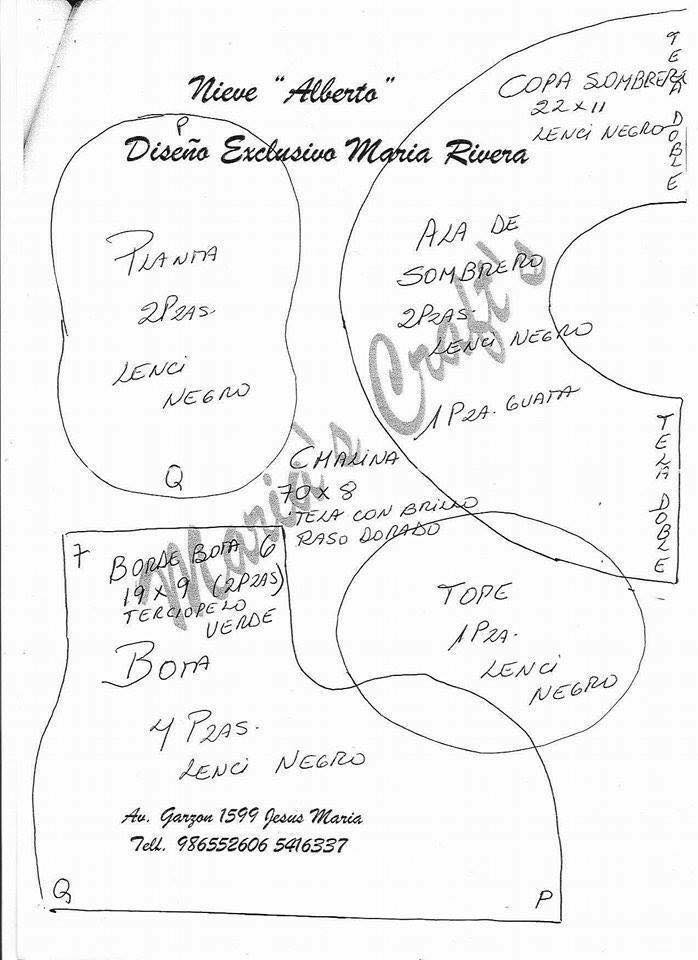 Nieve "Alberto"
Diseño Exclusivo Maria Rivera
P
PLANTA
2 PZAS.
LENCI
NEGRO
Q
COPA SOMBRERO
22 x 11
LENCI NEGRO
TELA DOBLE
ALA DE
SOMBRERO
2 PZAS.
LENCI NEGRO
1 PZA. GUATA
TELA DOBLE
Maria's Craft's
CHALINA
70 x 8
TELA CON BRILLO
RASO DORADO
7
BORDE BOTA 6
19 x 9 (2 PZAS)
TERCIOPELO
VERDE
BOTA
4 PZAS.
LENCI NEGRO
TOPE
1 PZA.
LENCI
NEGRO
Av. Garzon 1599 Jesus Maria
Telf. 986552606 5416337
Q
P